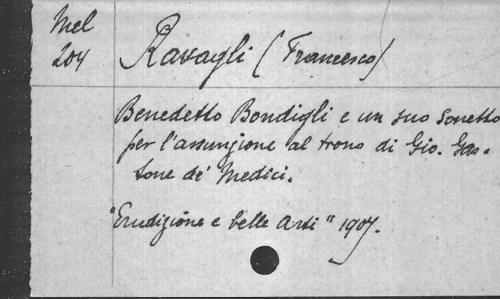 Mel
204
Ravagli (Francesco)
Benedetto Bondigli e un suo sonetto
per l'assunzione al trono di Gio. Gas-
tone de' Medici.
"Erudizione e belle arti" 1907.